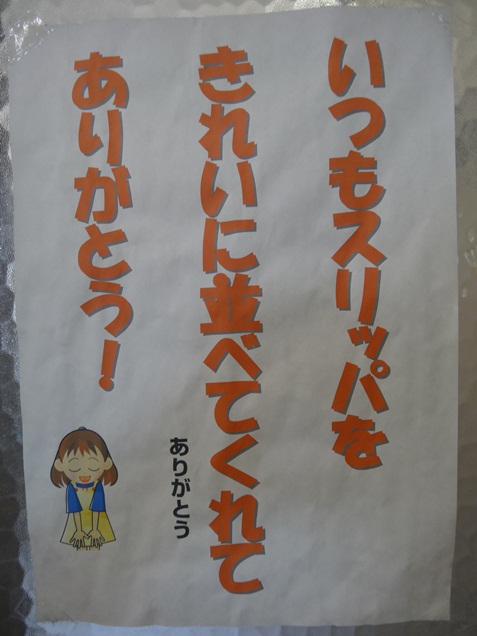 いつもスリッパを
きれいに並べてくれて
ありがとう！
ありがとう